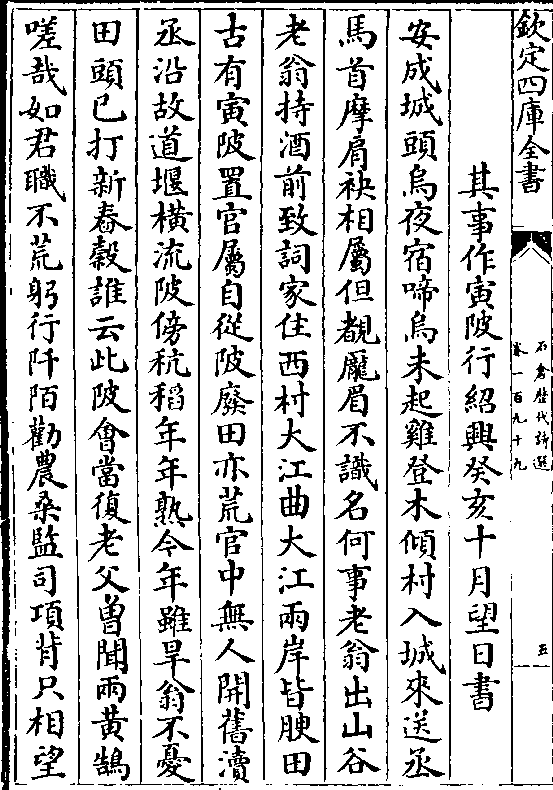 欽定四庫全書
石倉歷代詩選
卷一百九十九
五
其事作寅陂行紹興癸亥十月望日書
安成城頭烏夜宿啼烏未起雞登木傾村入城來送丞
馬首摩肩袂相屬但覩龎眉不識名何事老翁出山谷
老翁持酒前致詞家住西村大江曲大江兩岸皆腴田
古有寅陂置官屬自從陂廢田亦荒官中無人開舊瀆
丞沿故道堰橫流陂傍秔稻年年熟今年雖旱翁不憂
田頭已打新舂榖誰云此陂會當復老父曽聞兩黄鵠
嗟哉如君職不荒躬行阡陌勸農桑監司項背只相望